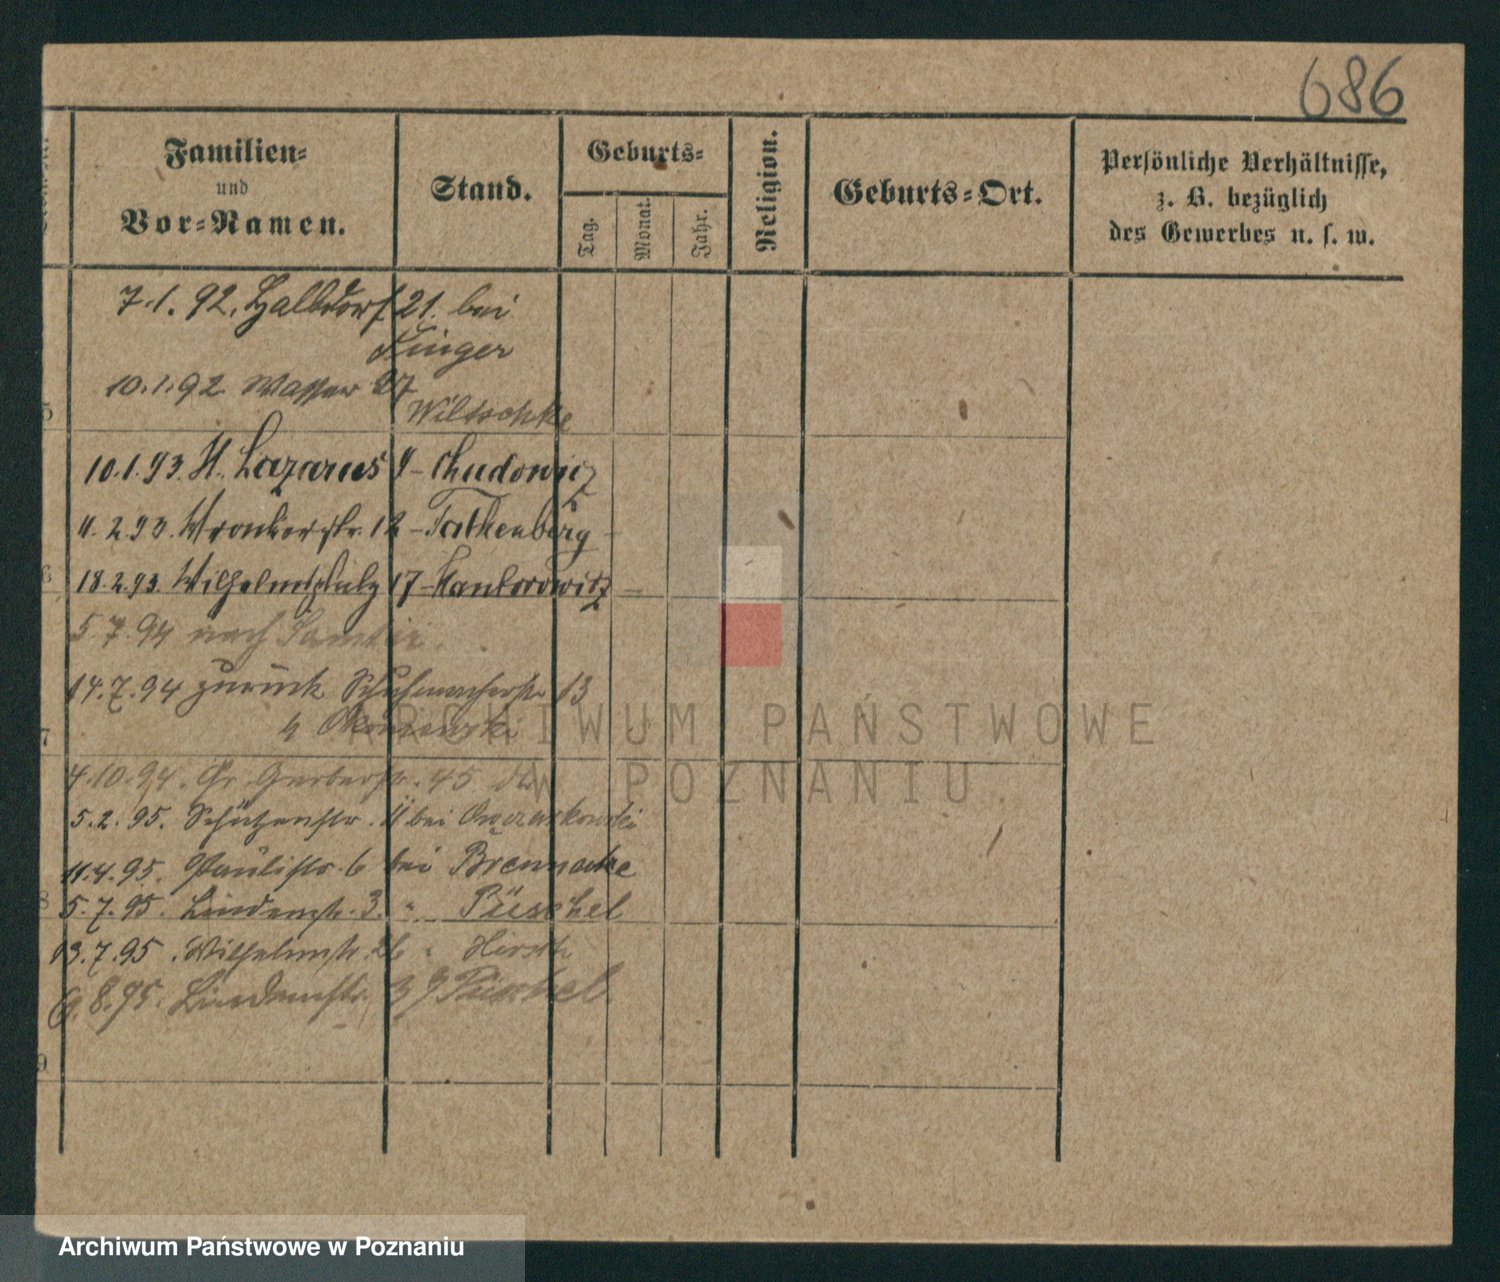 686
Familien-
und
Vor-Namen.
Stand.
Geburts-
Tag.
Monat.
Jahr.
Religion.
Geburts-Ort.
Persönliche Verhältnisse,
z. B. bezüglich
des Gewerbes u. s. w.
7.1.92. Halbdorf 21. bei
Finger
10.1.92 Wasser 27
Wiltschke
5
10.1.93. H. Lazarus 9 - Chudowicz
11.2.93. Wronkerstr. 12 - Falkenberg
6
18.2.93. Wilhelmsplatz 17 - Kantorowicz
5.7.94 nach
14.7.94 zurück Schuhmacherstr 13
7
4.10.94. Gr. Gerberstr. 45
5.2.95. Schützenstr. 11 bei
11.4.95. Paulistr. 6 bei
8
5.7.95. Lindenstr. 3. " Püschel
13.7.95. Wilhelmstr. 26 " Hirsch
6.8.95. Lindenstr. 3 Püschel
9
ARCHIWUM PAŃSTWOWE
W POZNANIU
Archiwum Państwowe w Poznaniu